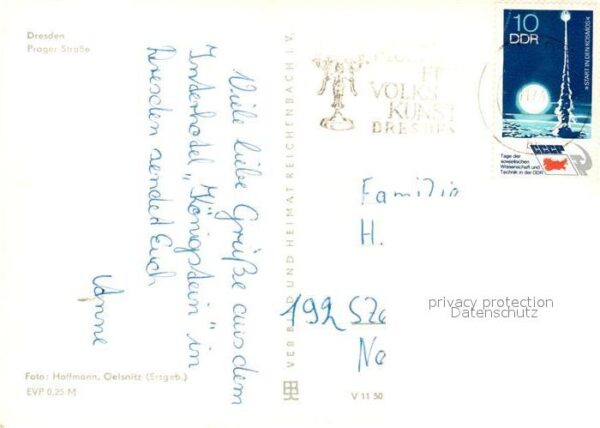 Dresden
Prager Straße
Viele liebe Grüße aus dem
Interhotel „Königstein" in
Dresden sendet Euch
Anne
Foto: Hoffmann, Oelsnitz (Erzgeb.)
EVP 0,25 M
VEB BILD UND HEIMAT REICHENBACH I. V.
V 11 50
VOLKS
KUNST
DRESDEN
10
DDR
»START IN DEN KOSMOS«
CCCP
Tage der
sowjetischen
Wissenschaft und
Technik in der DDR
Familie
H.
192
privacy protection
Datenschutz